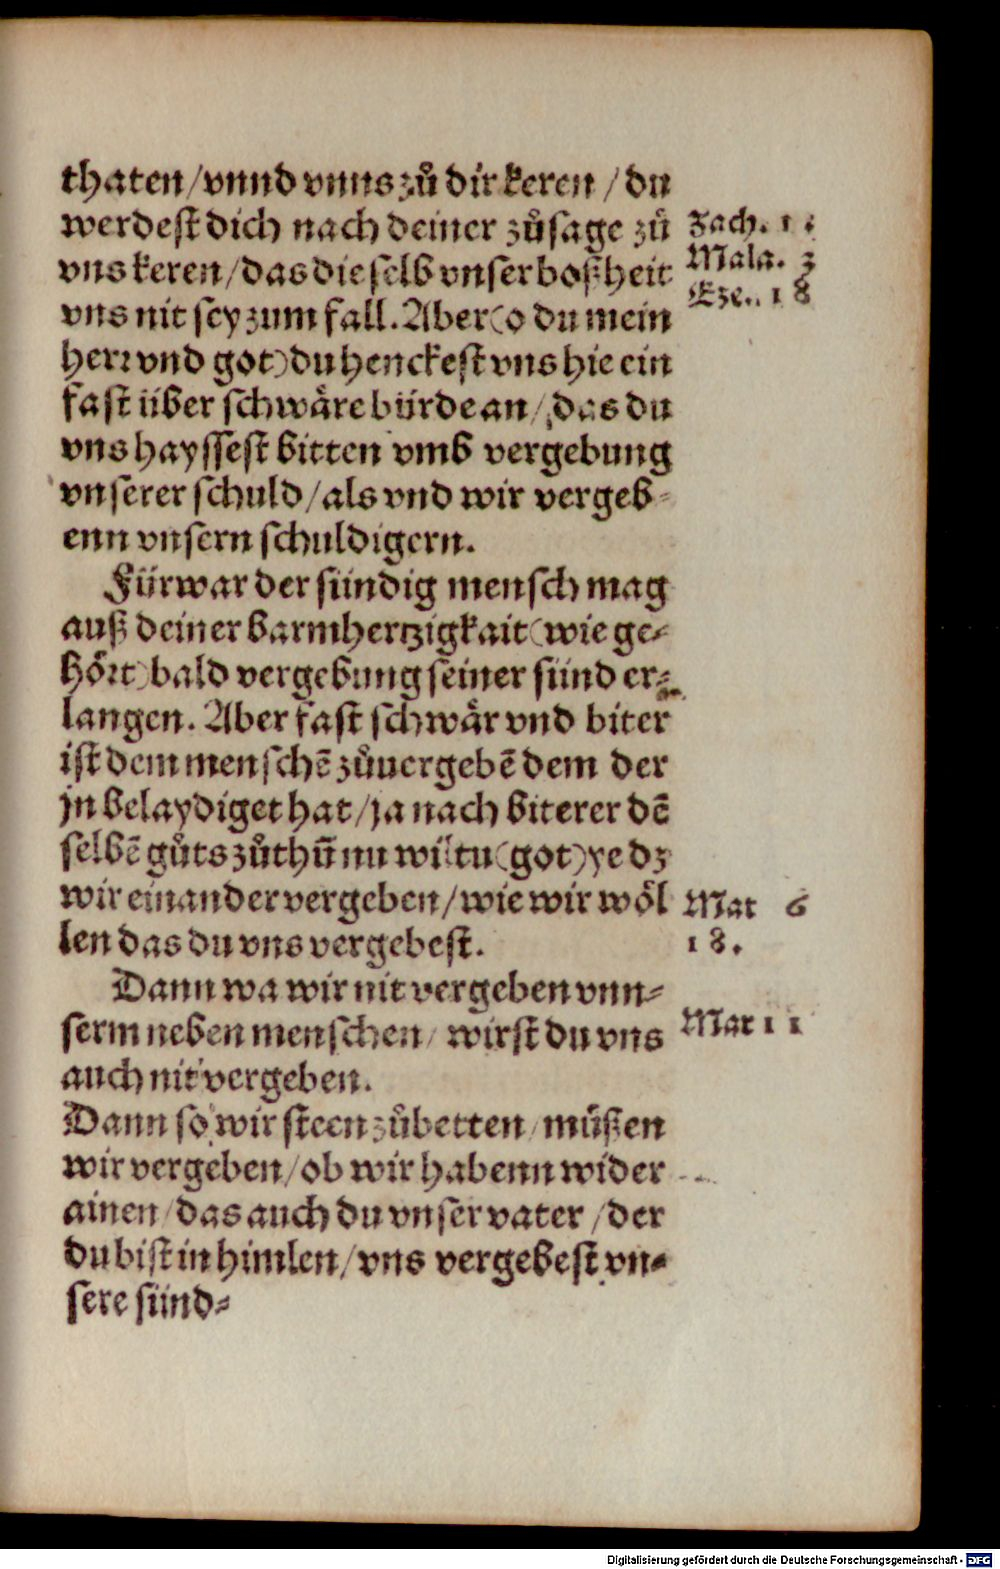 thaten/vnnd vnns zů dir keren/du
werdest dich nach deiner zůsage zů
vns keren/das die selb vnser boßheit
vns nit sey zum fall. Aber (o du mein
herr vnd got) du henckest vns hie ein
fast über schwäre bürde an/das du
vns hayssest bitten vmb vergebung
vnserer schuld/als vnd wir vergeb-
enn vnsern schuldigern.
Fürwar der sündig mensch mag
auß deiner barmhertzigkait (wie ge-
hört) bald vergebung seiner sünd er-
langen. Aber fast schwär vnd biter
ist dem menschē zůuergebē dem der
jn belaydiget hat/ja nach biterer dē
selbē gůts zůthūn nu wiltu (got) ye dz
wir einander vergeben/wie wir wöl
len das du vns vergebest.
Dann wa wir nit vergeben vnn-
serm neben menschen/wirst du vns
auch nit vergeben.
Dann so wir steen zůbetten/müßen
wir vergeben/ob wir habenn wider
ainen/das auch du vnser vater/der
du bist in himlen/vns vergebest vn-
sere sünd-
Zach. 1
Mala. 3
Eze.. 18
Mat 6
18.
Mar 11
Digitalisierung gefördert durch die Deutsche Forschungsgemeinschaft - DFG